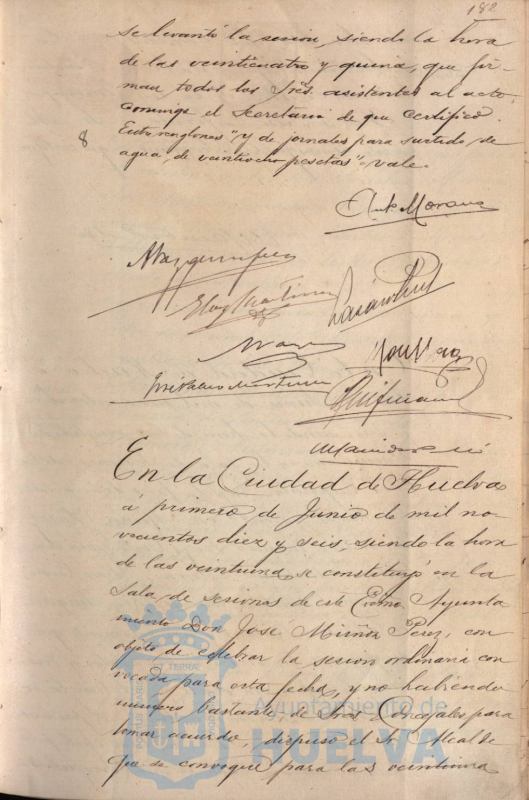 182
se levantó la sesion, siendo la hora
de las veinticuatro y quince, que fir-
man todos los Sres. asistentes al acto
conmigo el Secretario de que certifico.
Entre renglones "y de jornales para surtido de
8
agua, de veintiocho pesetas" vale.
Ant. Moreno
En la Ciudad de Huelva
á primero de Junio de mil no-
vecientos diez y seis, siendo la hora
de las veintiuna, se constituyó en la
Sala de sesiones de este Excmo. Ayunta-
miento Don José Muñoz Perez, con
objeto de celebrar la sesion ordinaria con
vocada para esta fecha, y no habiendo
numero bastante de Sres. Concejales para
tomar acuerdo, dispuso el Sr. Alcalde
que se convoque para las veintiuna
Ayuntamiento de
HUELVA